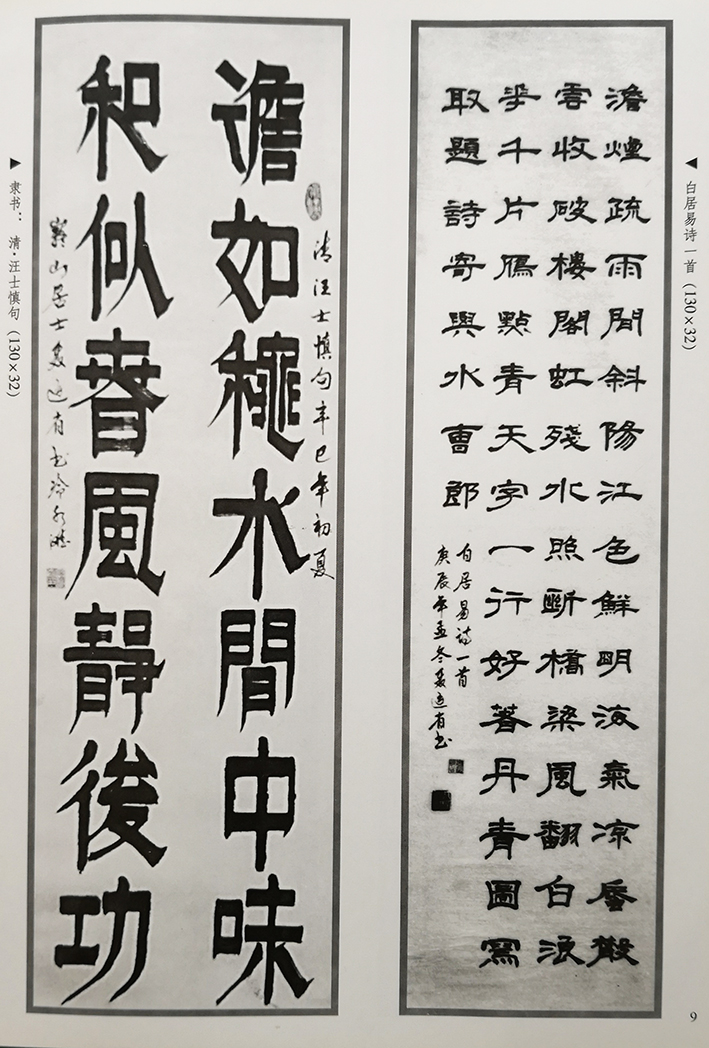 ▶ 白居易诗一首 (130×32)
澹煙疏雨間斜陽江色鮮明海氣凉蜃散
雲收破樓閣虹殘水照斷橋梁風翻白浪
花千片鴈點青天字一行好著丹青圖寫
取題詩寄與水曹郎
白居易诗一首
庚辰年孟冬
澹如龝水間中味
清汪士慎句辛巳年初夏
和似春風靜後功
山居士
▶ 隶书: 清·汪士慎句 (130×32)
9